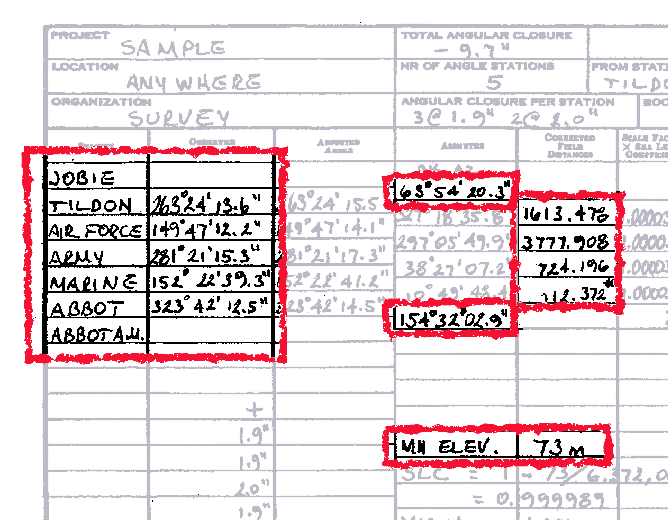 PROJECT SAMPLE TOTAL ANGULAR CLOSURE - 9.7"
LOCATION ANYWHERE NR OF ANGLE STATIONS 5 FROM STATI TILDO
ORGANIZATION SURVEY ANGULAR CLOSURE PER STATION 3@ 1.9" 2@ 2.0"
STATION OBSERVED ADJUSTED ANGLE AZIMUTH CORRECTED FIELD DISTANCES SCALE FAC X SEA LE
JOBIE
63°54'20.3"
TILDON 263°24'13.6" 63°24'15.5 1613.478
AIR FORCE 149°47'12.2" 49°47'14.1" .0000
ARMY 281°21'15.3" 81°21'17.3" 297°05'49.9" 3777.908
MARINE 152° 22'39.3" 52°22'41.2" 38°27'07.2 724.196 .0000
ABBOT 323°42'12.5" 23°42'14.5" 112.372
154°32'02.9"
ABBOT AU.
+
1.9"
1.9" MN ELEV. 73 m
2.0" SLC = 1 - 73/6,372,0
1.9" = 0.999989